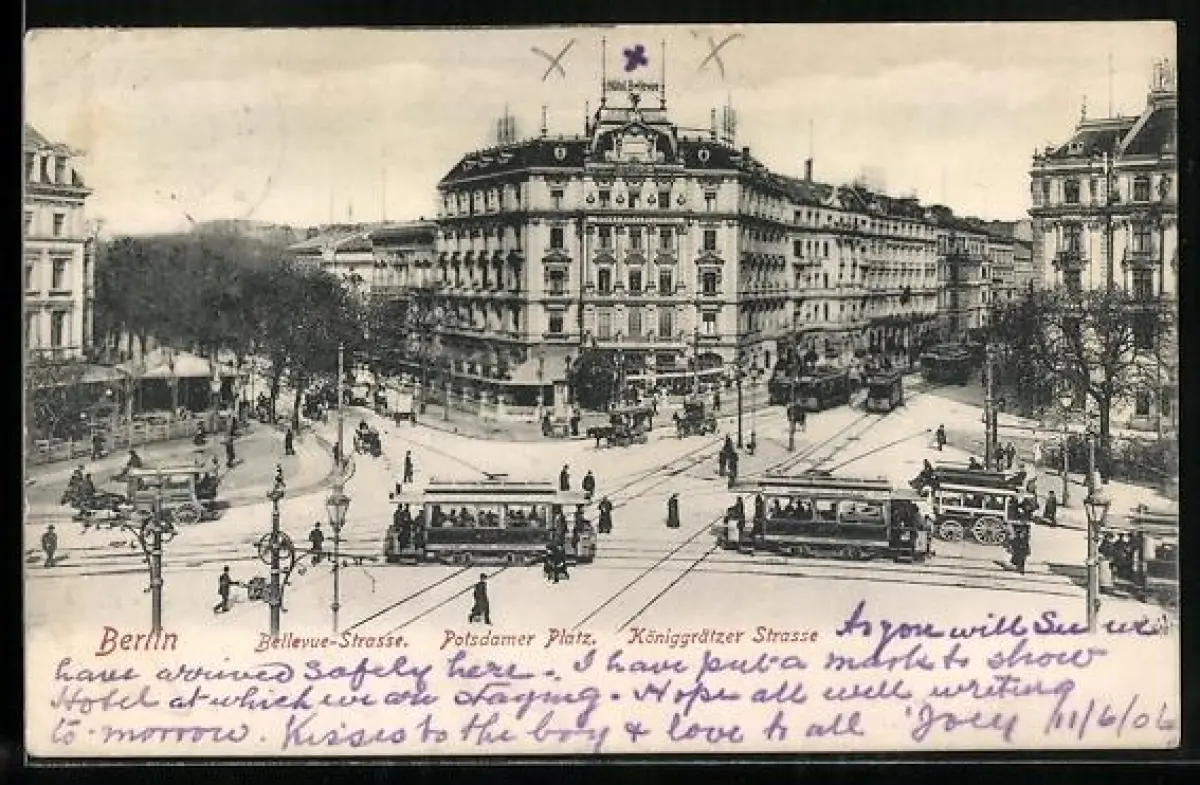 Hôtel Bellevue
Berlin Bellevue-Strasse. Potsdamer Platz. Königgrätzer Strasse
As you will see we
have arrived safely here. I have put a mark to show
Hotel at which we are staying. Hope all well writing
to-morrow. Kisses to the boy & love to all Joey 11/6/06